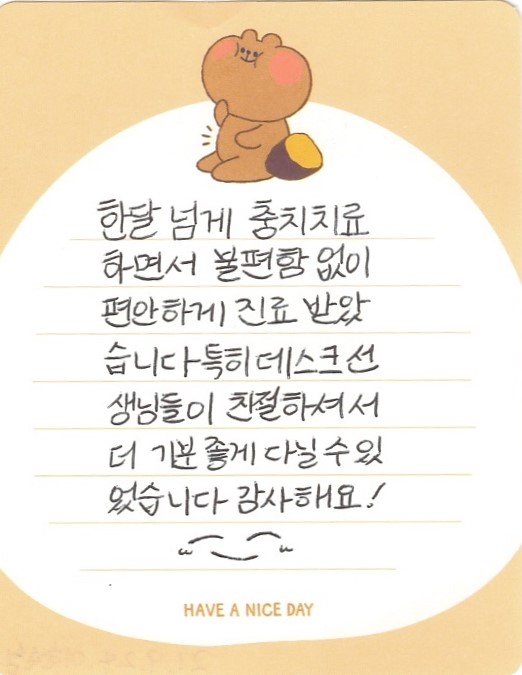 한달 넘게 충치치료
하면서 불편함 없이
편안하게 진료 받았
습니다 특히 데스크 선
생님들이 친절하셔서
더 기분 좋게 다닐 수 있
었습니다 감사해요!
HAVE A NICE DAY